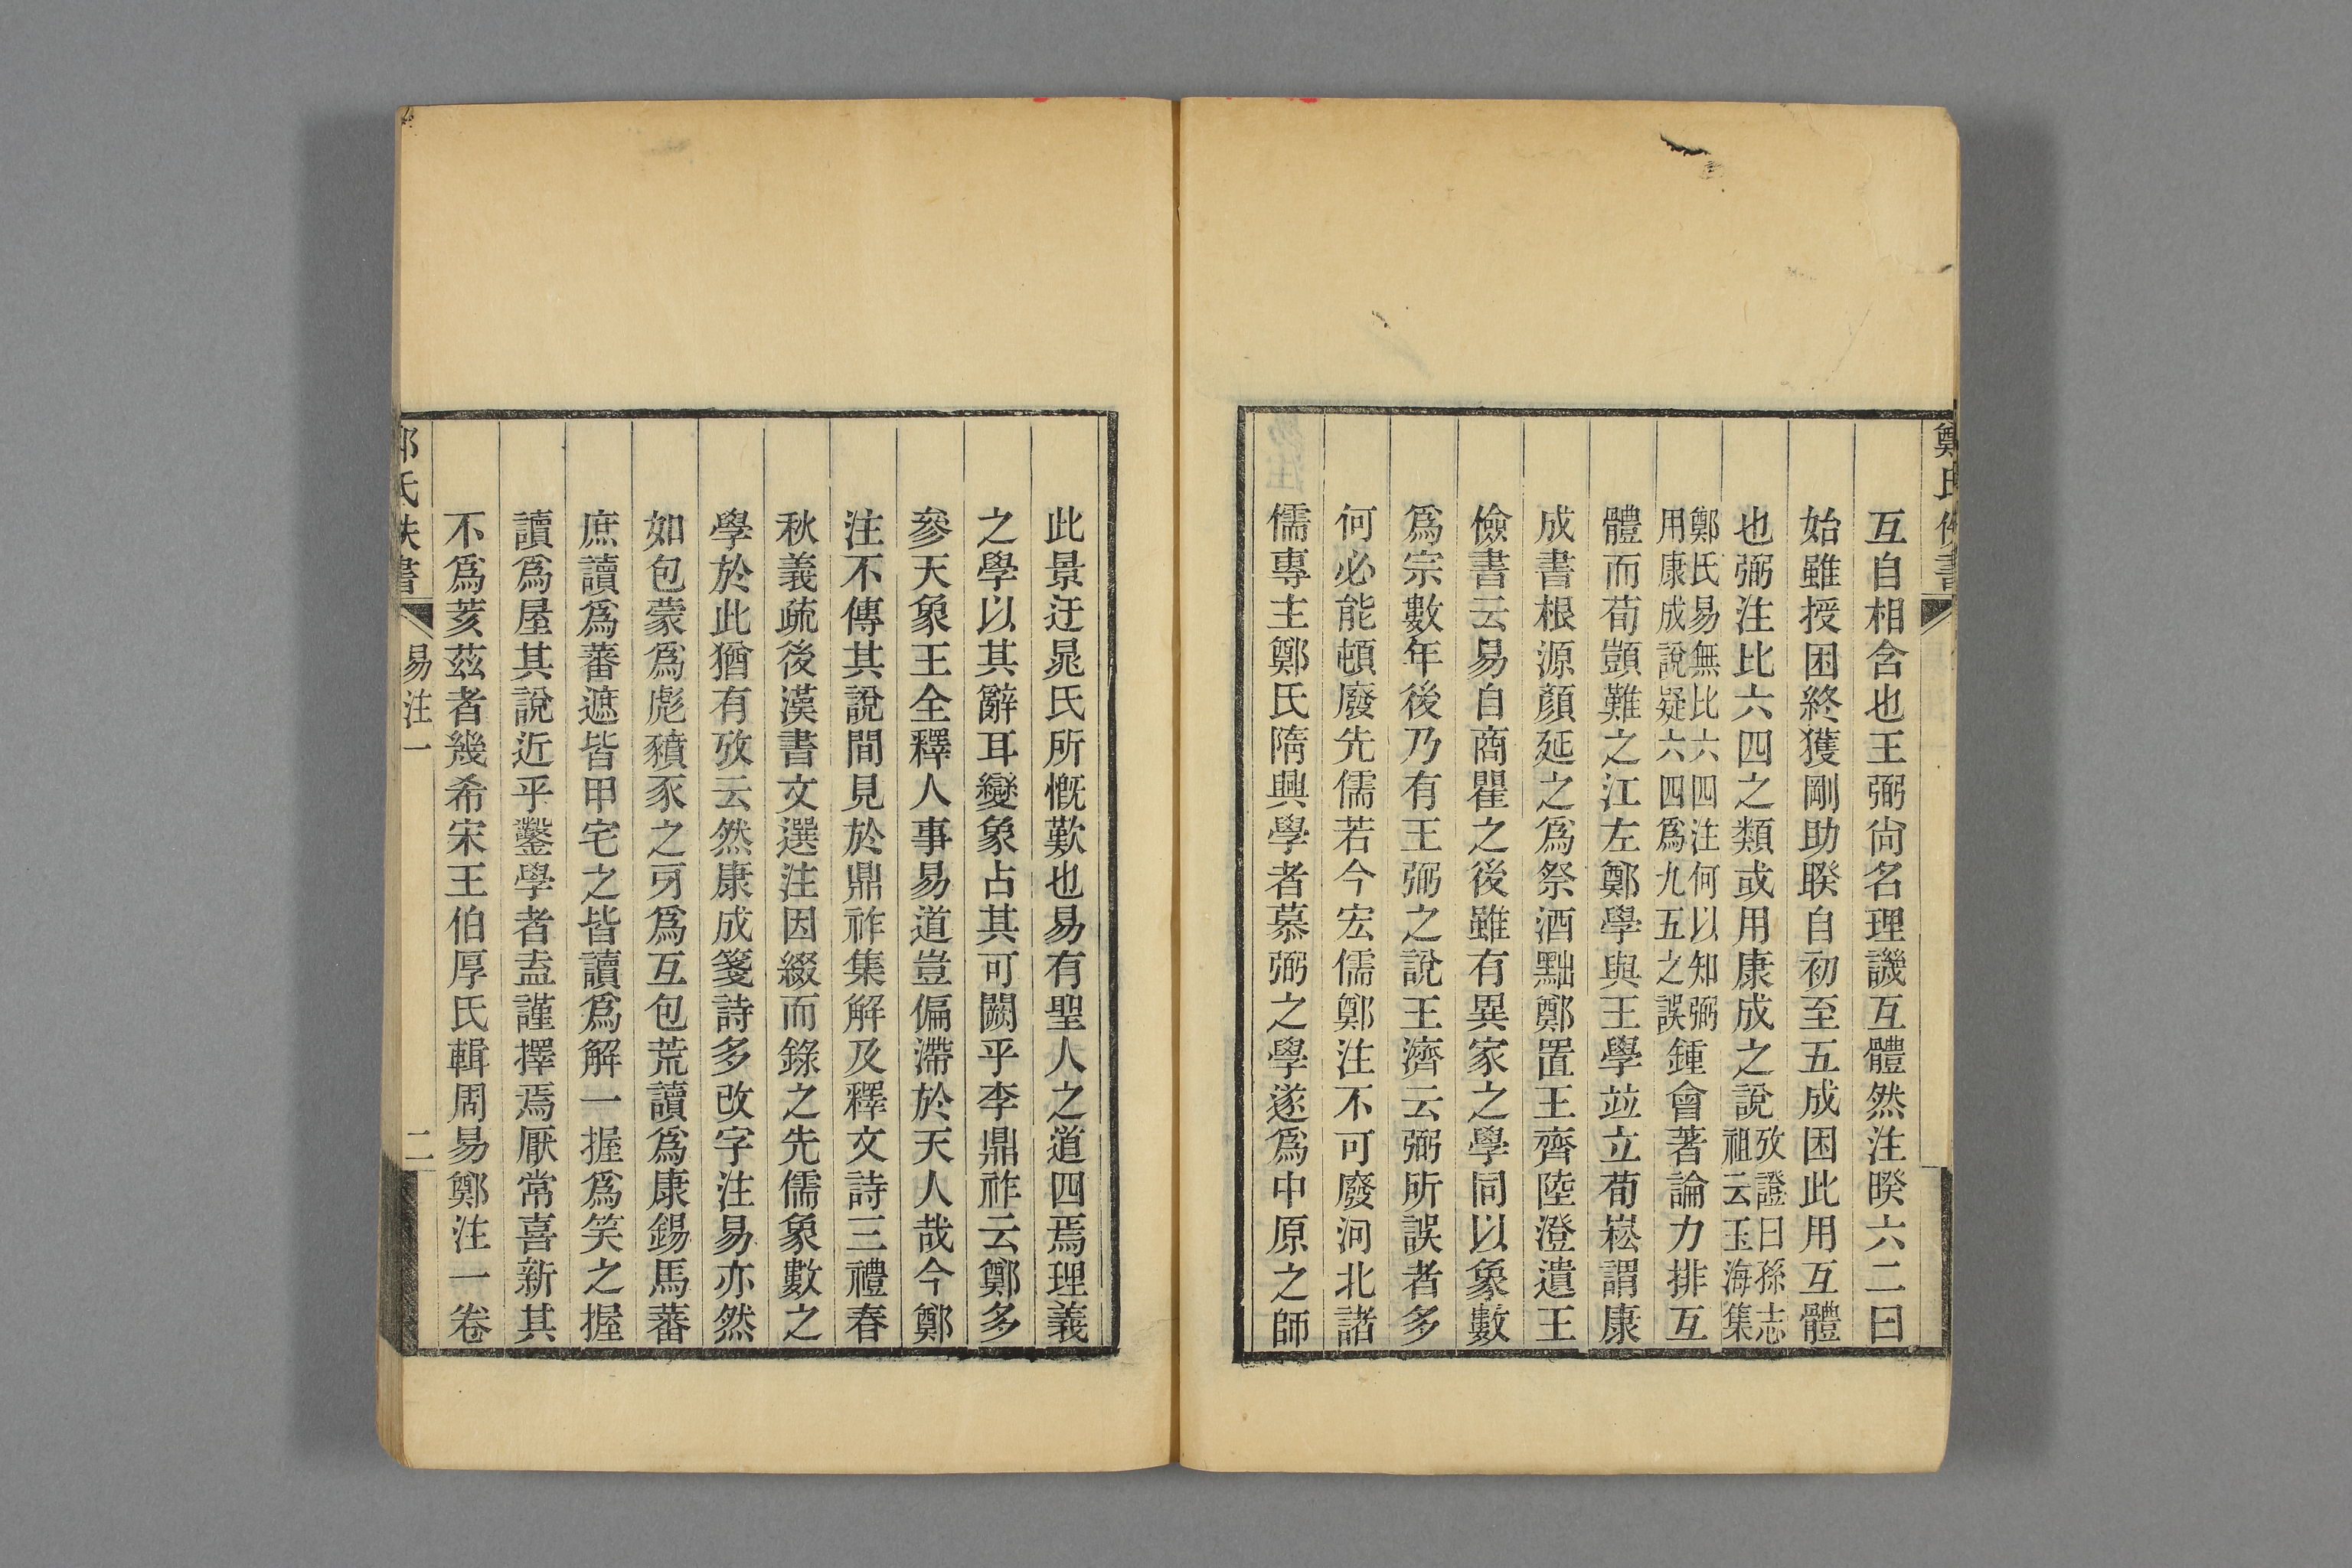 鄭氏佚書
互自相含也王弼尙名理譏互體然注暌六二曰
始雖授困終獲剛助睽自初至五成困此用互體
也弼注比六四之類或用康成之說攷證曰孫志祖云玉海集
鄭氏易無比六四注何以知弼用康成說疑六四爲九五之誤鍾會著論力排互
體而荀顗難之江左鄭學與王學竝立荀崧謂康
成書根源顏延之爲祭酒黜鄭置王齊陸澄遺王
儉書云易自商瞿之後雖有異家之學同以象數
爲宗數年後乃有王弼之說王濟云弼所誤者多
何必能頓廢先儒若今宏儒鄭注不可廢河北諸
儒專主鄭氏隋興學者慕弼之學遂爲中原之師
此景迂晁氏所慨歎也易有聖人之道四焉理義
之學以其辭耳變象占其可闕乎李鼎祚云鄭多
參天象王全釋人事易道豈偏滯於天人哉今鄭
注不傳其說間見於鼎祚集解及釋文詩三禮春
秋義疏後漢書文選注因綴而錄之先儒象數之
學於此猶有攷云然康成箋詩多改字注易亦然
如包蒙爲彪豶豕之牙爲互包荒讀爲康錫馬蕃
庶讀爲蕃遮皆甲宅之皆讀爲解一握爲笑之握
讀爲屋其說近乎鑿學者盍謹擇焉厭常喜新其
不爲荄茲者幾希宋王伯厚氏輯周易鄭注一卷
鄭氏佚書
易注一
二